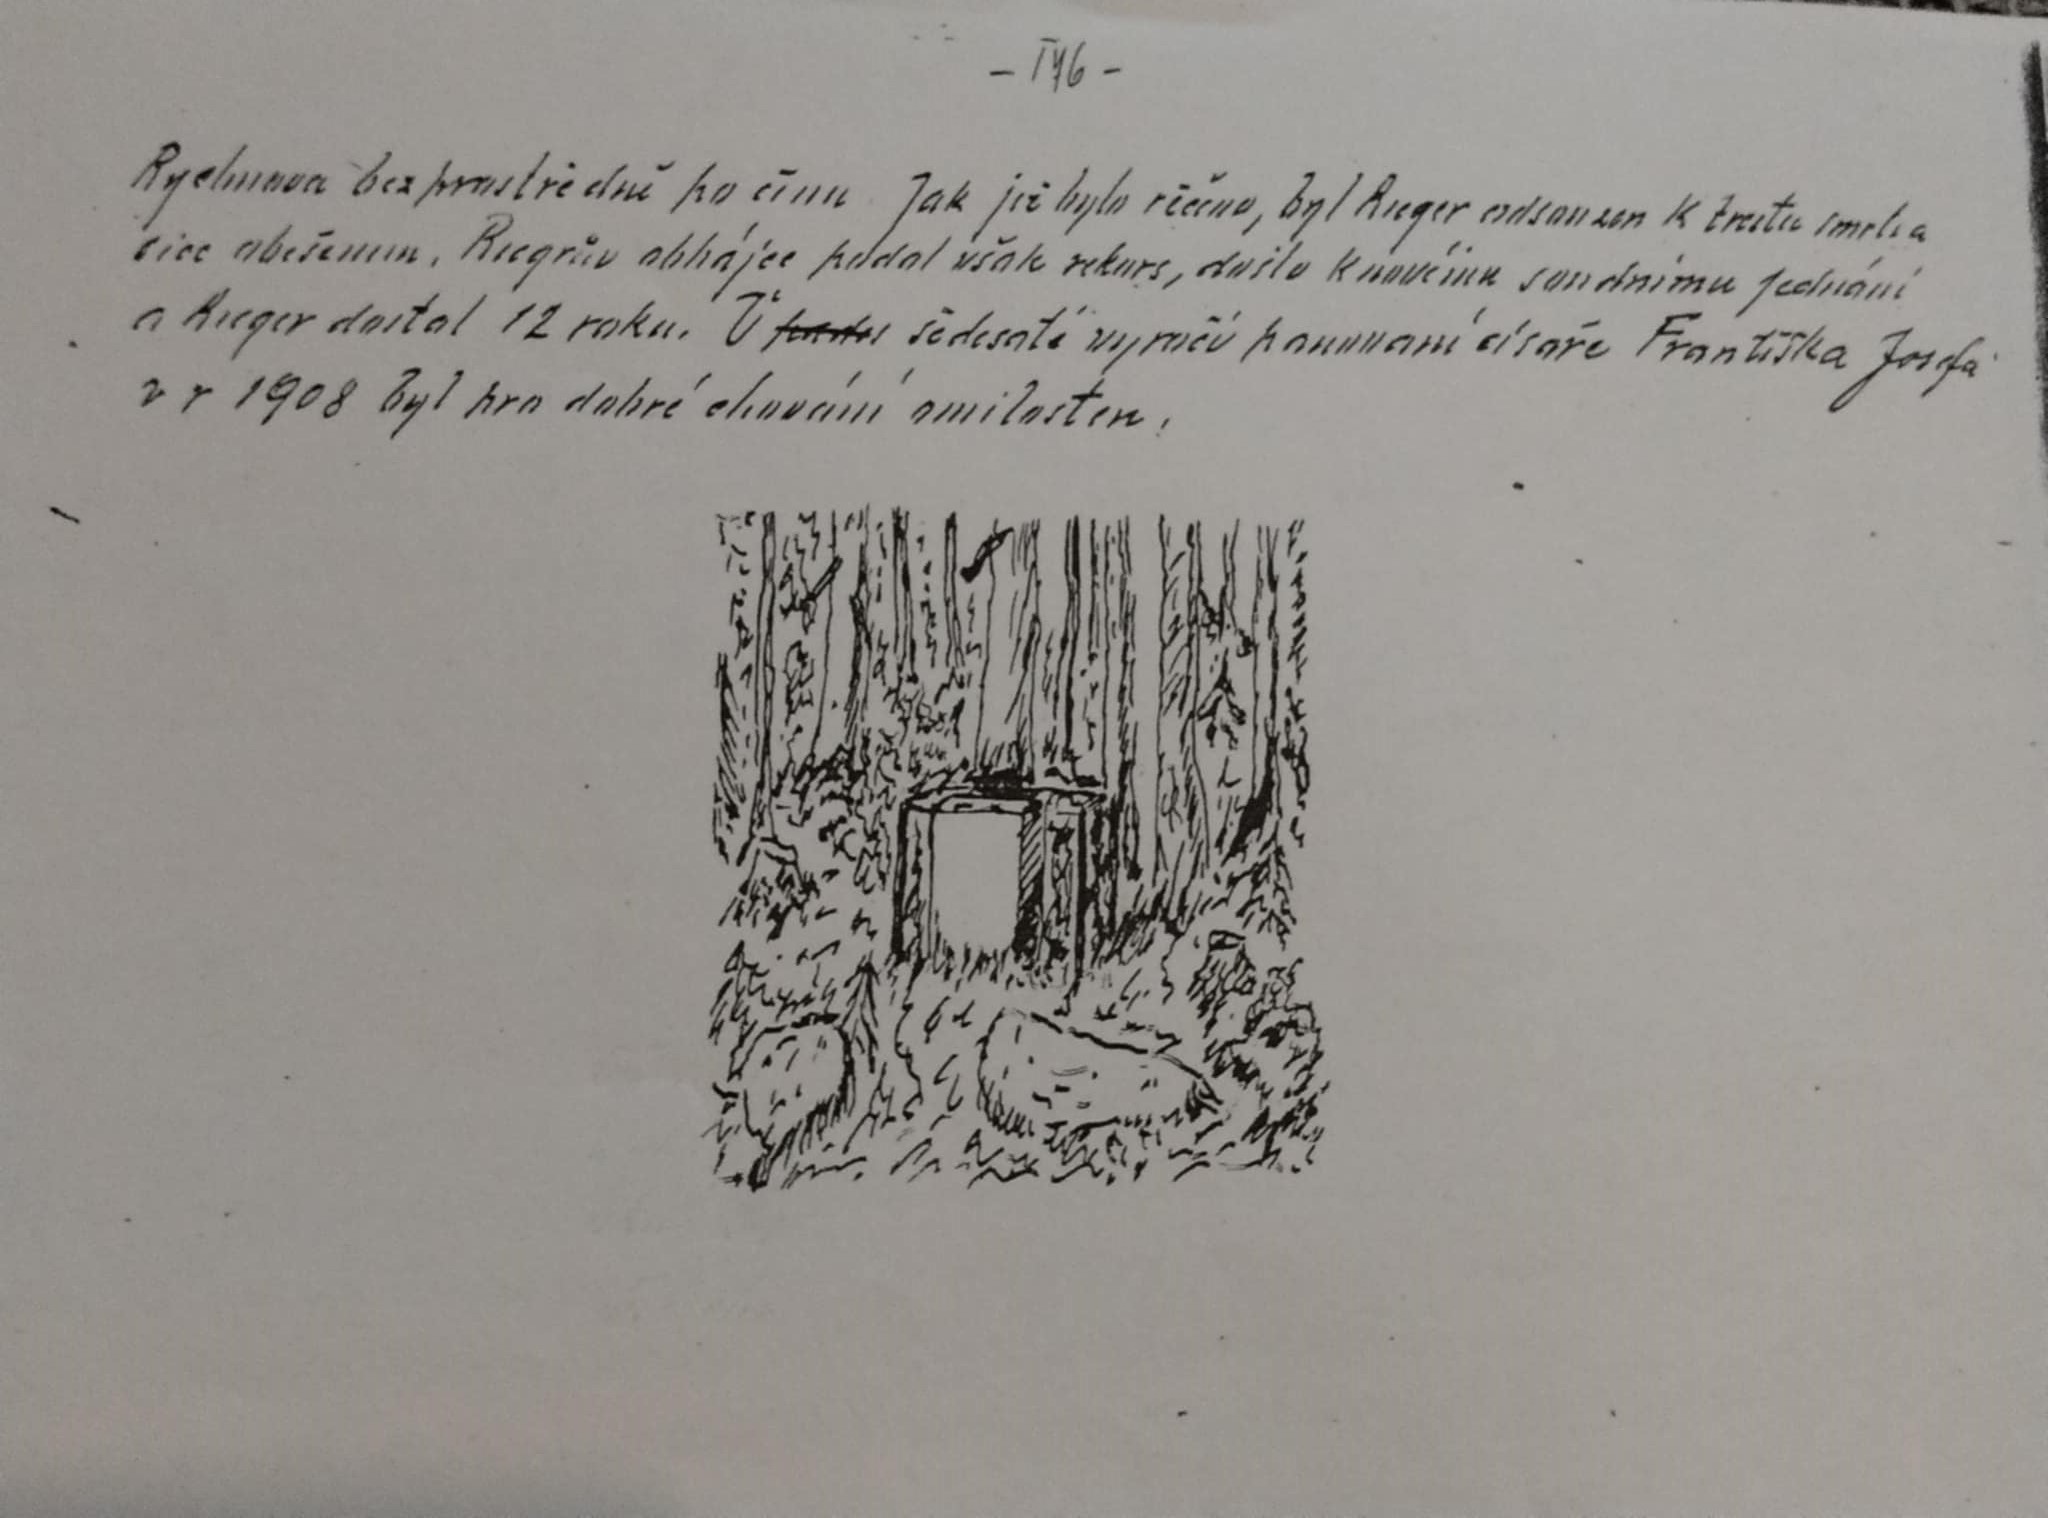 - 176 -
Rychnova bezprostředně po činu. Jak již bylo řečeno, byl Rieger odsouzen k trestu smrti a
sice oběšením. Riegrův obhájce podal však rekurs, došlo k novému soudnímu jednání
a Rieger dostal 12 roků. V šedesáté výročí panování císaře Františka Josefa
v r 1908 byl pro dobré chování omilostěn.